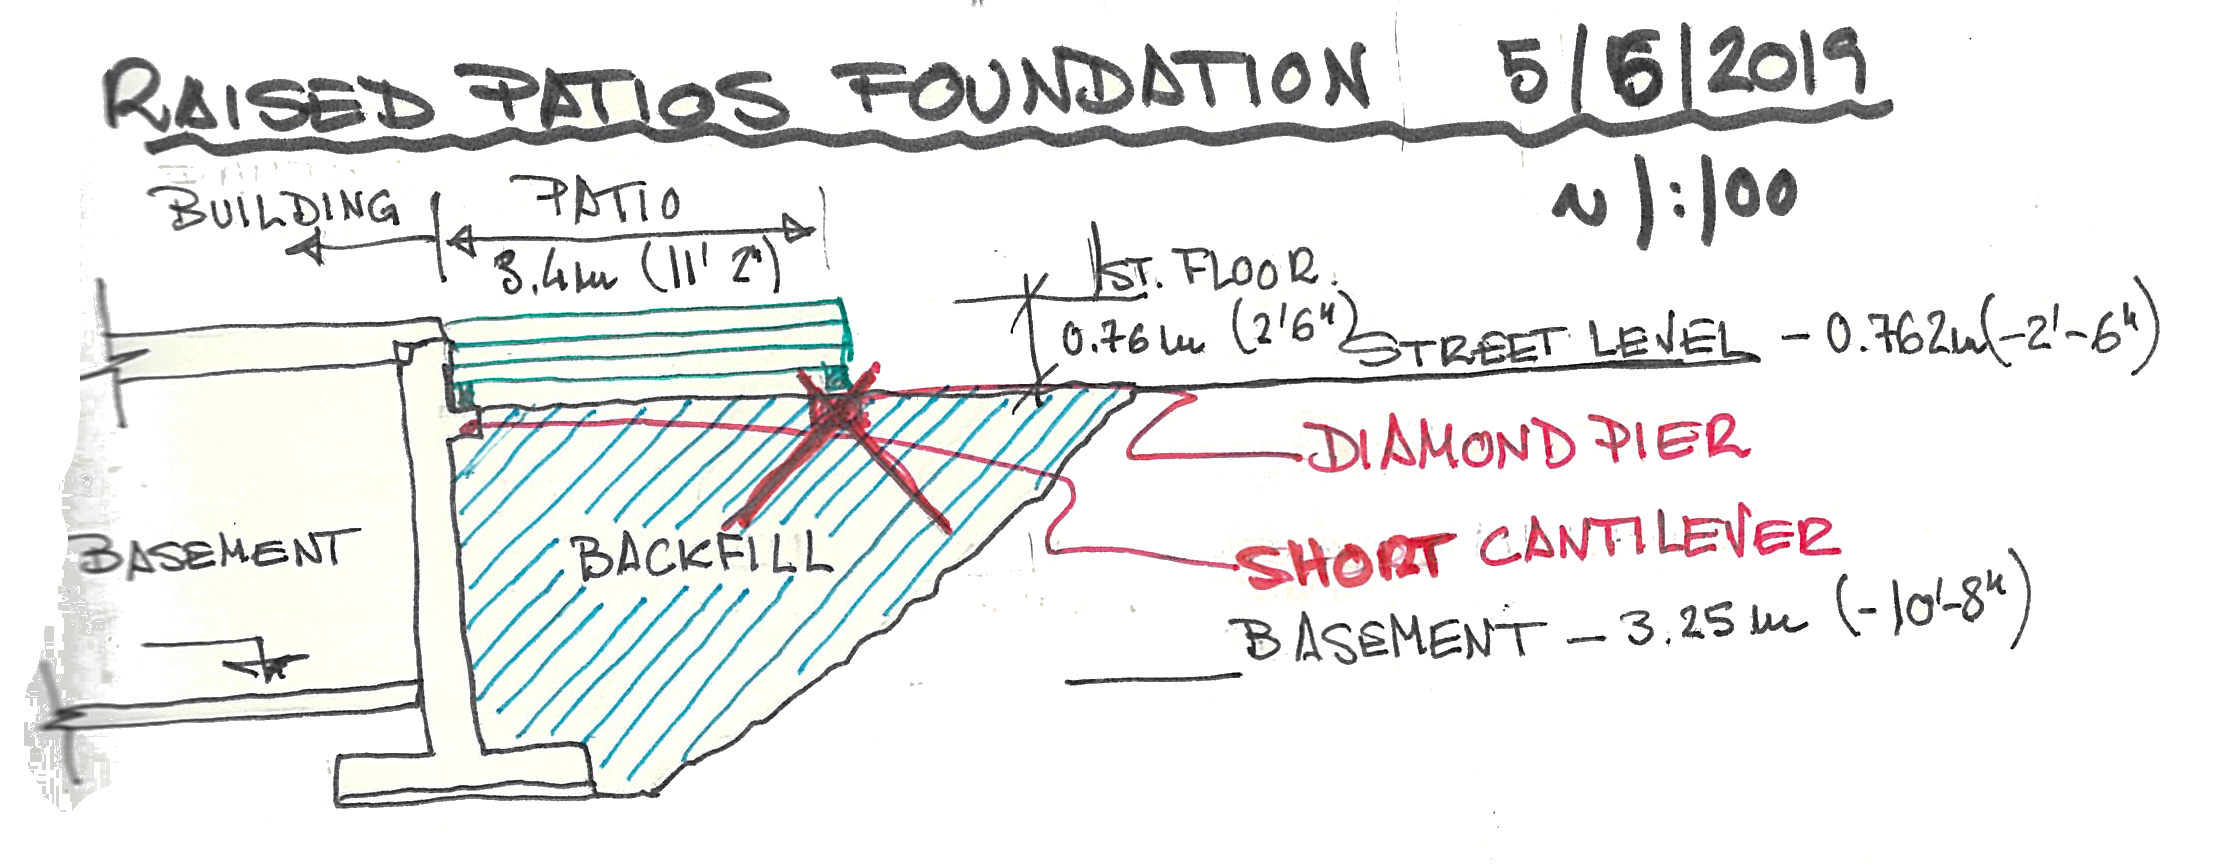 RAISED PATIOS FOUNDATION 5/6/2019
~ 1:100
BUILDING
PATIO
3.4m (11' 2")
1ST. FLOOR.
0.76m (2'6")
STREET LEVEL - 0.762m (-2'-6")
DIAMOND PIER
SHORT CANTILEVER
BASEMENT
BACKFILL
BASEMENT - 3.25m (-10'-8")